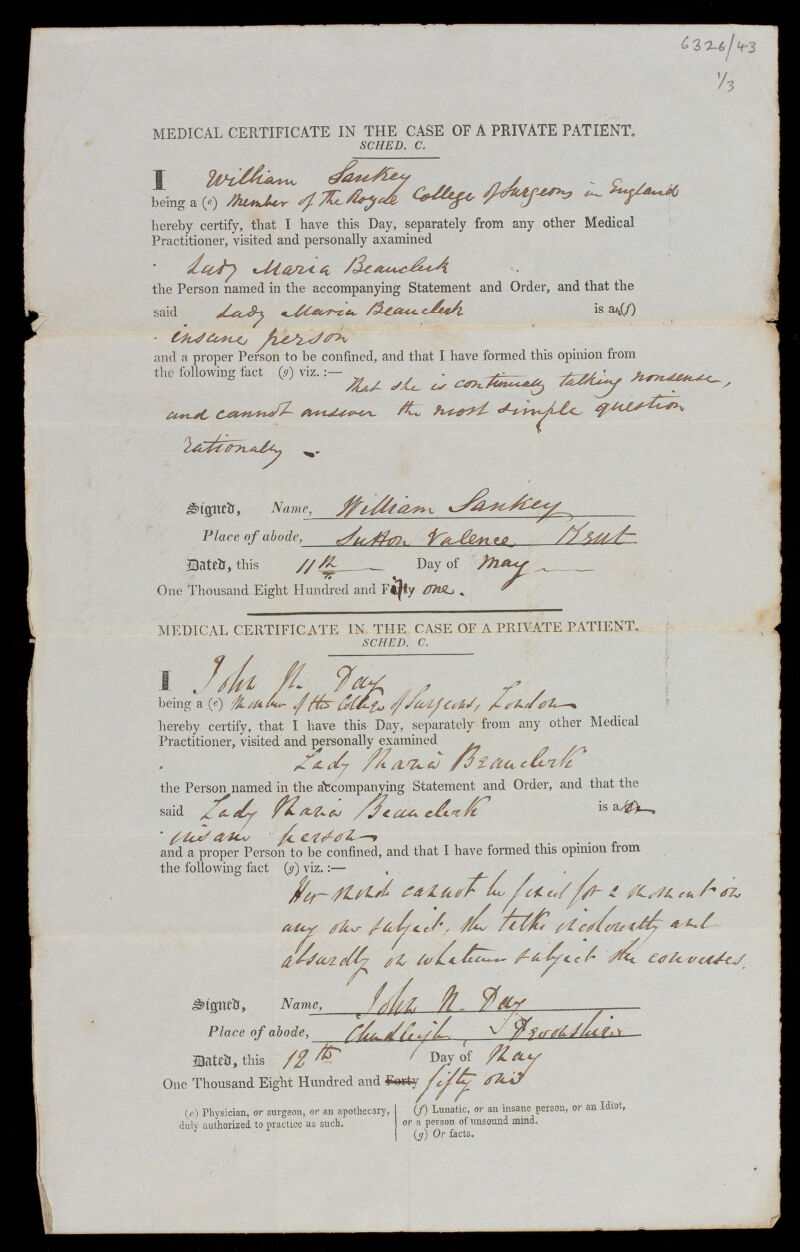 6326/43
1/3
MEDICAL CERTIFICATE IN THE CASE OF A PRIVATE PATIENT.
SCHED. C.
I William Sankey
being a (e) Member of The Royal College of Surgeons in England
hereby certify, that I have this Day, separately from any other Medical
Practitioner, visited and personally examined
Lady Maria Beauclerk
the Person named in the accompanying Statement and Order, and that the
said Lady Maria Beauclerk is an (f)
insane person
and a proper Person to be confined, and that I have formed this opinion from
the following fact (g) viz. :—
That she is continually talking nonsense,
and cannot answer the most simple question
rationally -
Signed, Name, William Sankey
Place of abode, Sutton Valence Kent
Dated, this 11th Day of May
One Thousand Eight Hundred and Fifty one.
MEDICAL CERTIFICATE IN THE CASE OF A PRIVATE PATIENT.
SCHED. C.
I John N. Day
being a (e) Member of the College of Surgeons, London
hereby certify, that I have this Day, separately from any other Medical
Practitioner, visited and personally examined
Lady Maria Beauclerk
the Person named in the accompanying Statement and Order, and that the
said Lady Maria Beauclerk is an
insane person
and a proper Person to be confined, and that I have formed this opinion from
the following fact (g) viz. :—
Her mind cannot be fixed for a moment on
any one subject, she talks incoherently and
absurdly on whatever subject she converses.
Signed, Name, John N. Day
Place of abode, Chudleigh, Devonshire
Dated, this 12th Day of May
One Thousand Eight Hundred and Forty fifty one
(e) Physician, or surgeon, or an apothecary,
duly authorized to practice as such.
(f) Lunatic, or an insane person, or an Idiot,
or a person of unsound mind.
(g) Or facts.